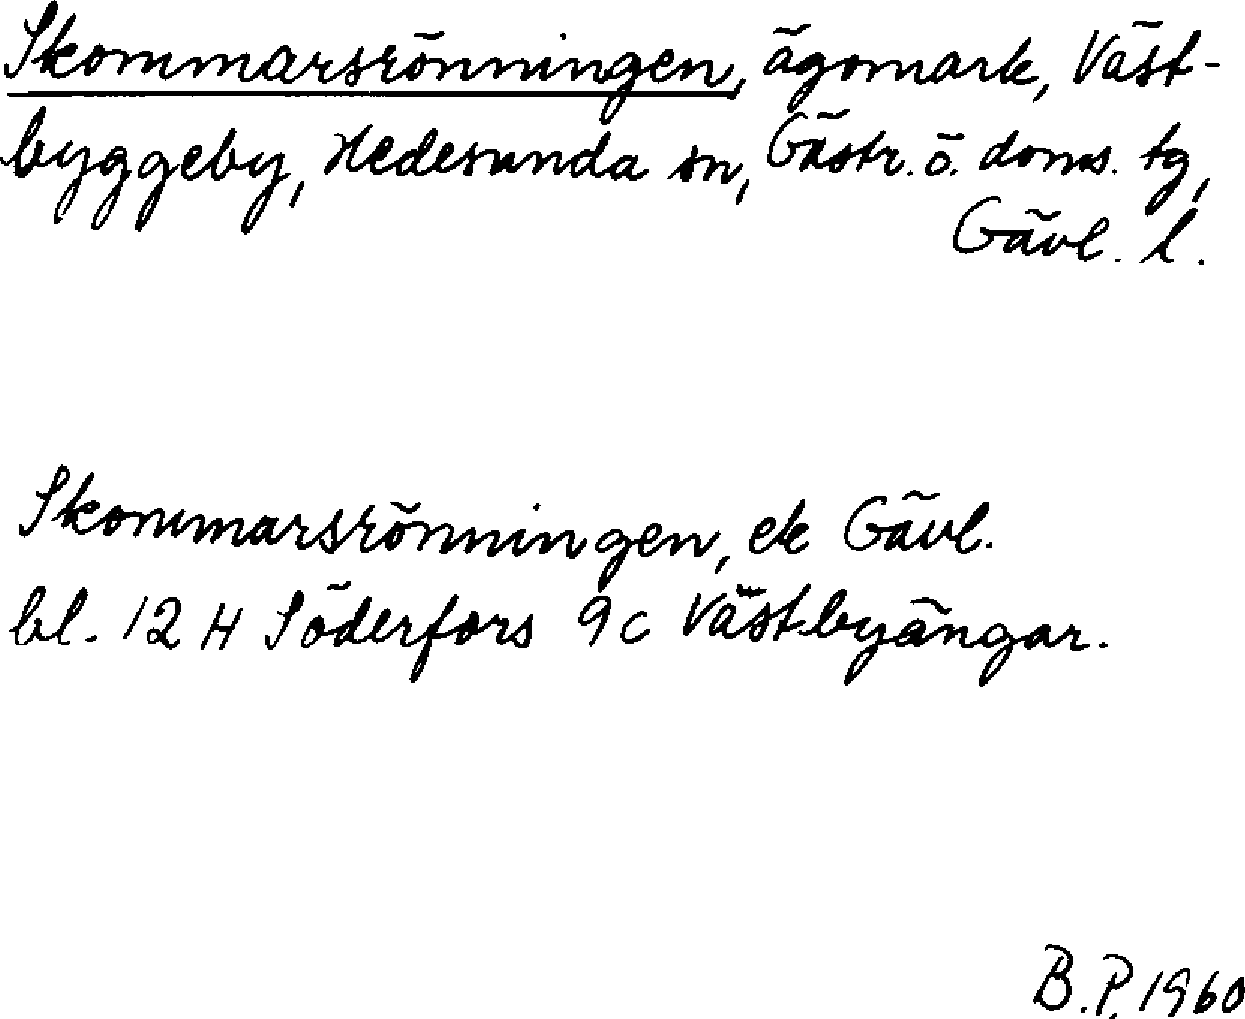 Skommarsrönningen, ägomark, Väst-
byggeby, Hedesunda sn, Gästr. ö. doms. tg,
Gävl. l.
Skommarsrönningen, ek Gävl.
bl. 12 H Söderfors 9c Västbyängar.
B.P. 1960